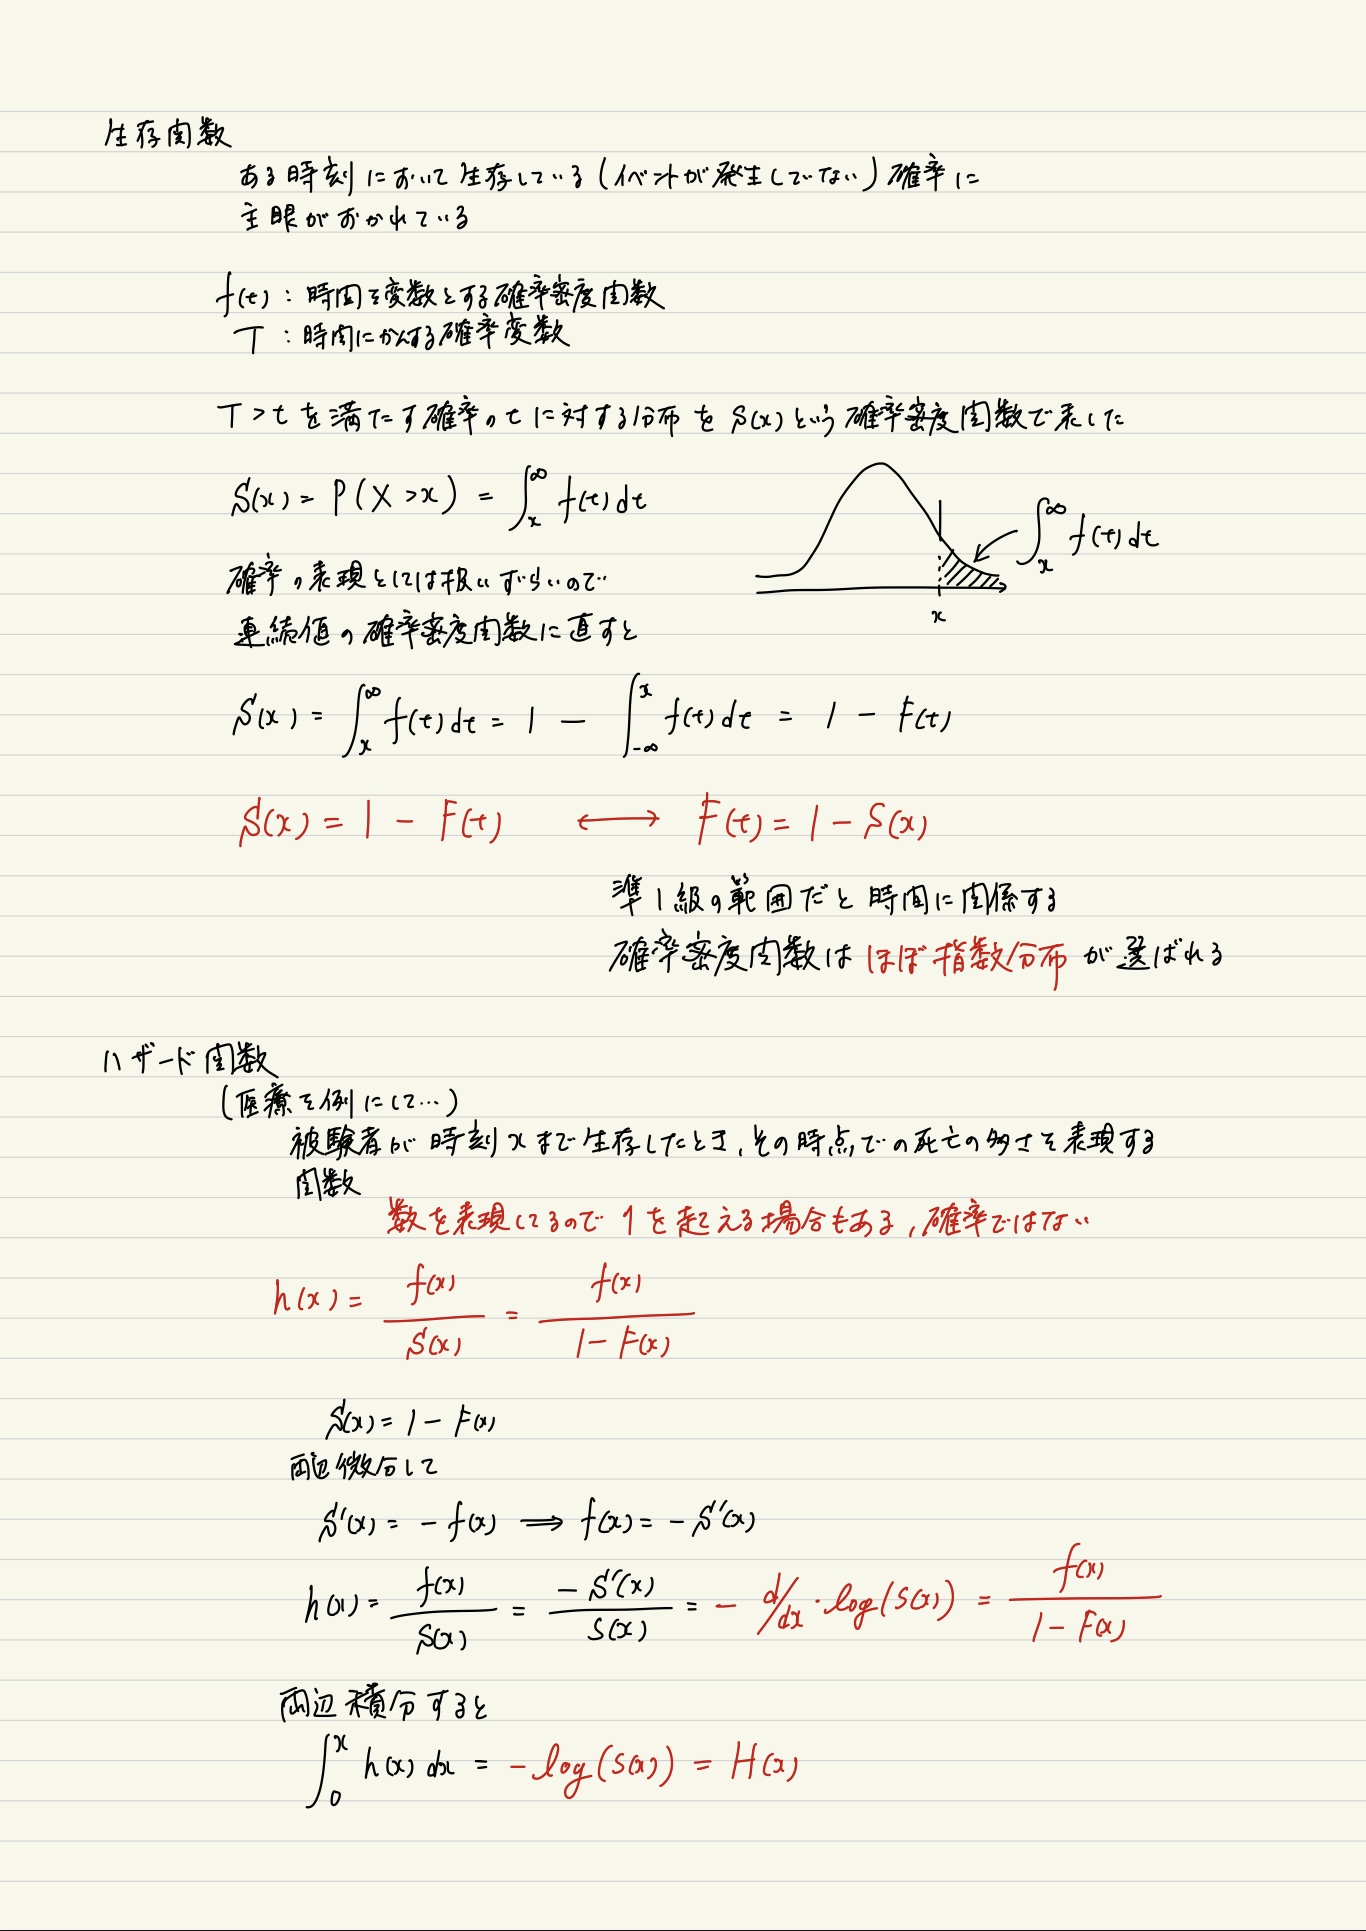 生存関数
ある時刻において生存している(イベントが発生していない)確率に
主眼がおかれている
f(t) : 時間を変数とする確率密度関数
T : 時間にかんする確率変数
T > t を満たす確率の t に対する分布を S(x) という確率密度関数で表した
S(x) = P(X > x) = ∫_x^∞ f(t) dt
∫_x^∞ f(t) dt
x
確率の表現としては扱いずらいので
連続値の確率密度関数に直すと
S(x) = ∫_x^∞ f(t) dt = 1 − ∫_{-∞}^x f(t) dt = 1 − F(t)
S(x) = 1 − F(t) ⟷ F(t) = 1 − S(x)
準1級の範囲だと時間に関係する
確率密度関数はほぼ指数分布が選ばれる
ハザード関数
(医療を例にして…)
被験者が時刻xまで生存したとき,その時点での死亡の多さを表現する
関数
数を表現してるので1を超える場合もある,確率ではない
h(x) = f(x)/S(x) = f(x)/(1 − F(x))
S(x) = 1 − F(x)
両辺微分して
S'(x) = − f(x) ⟹ f(x) = − S'(x)
h(x) = f(x)/S(x) = − S'(x)/S(x) = − d/dx · log(S(x)) = f(x)/(1 − F(x))
両辺積分すると
∫_0^x h(x) dx = − log(S(x)) = H(x)